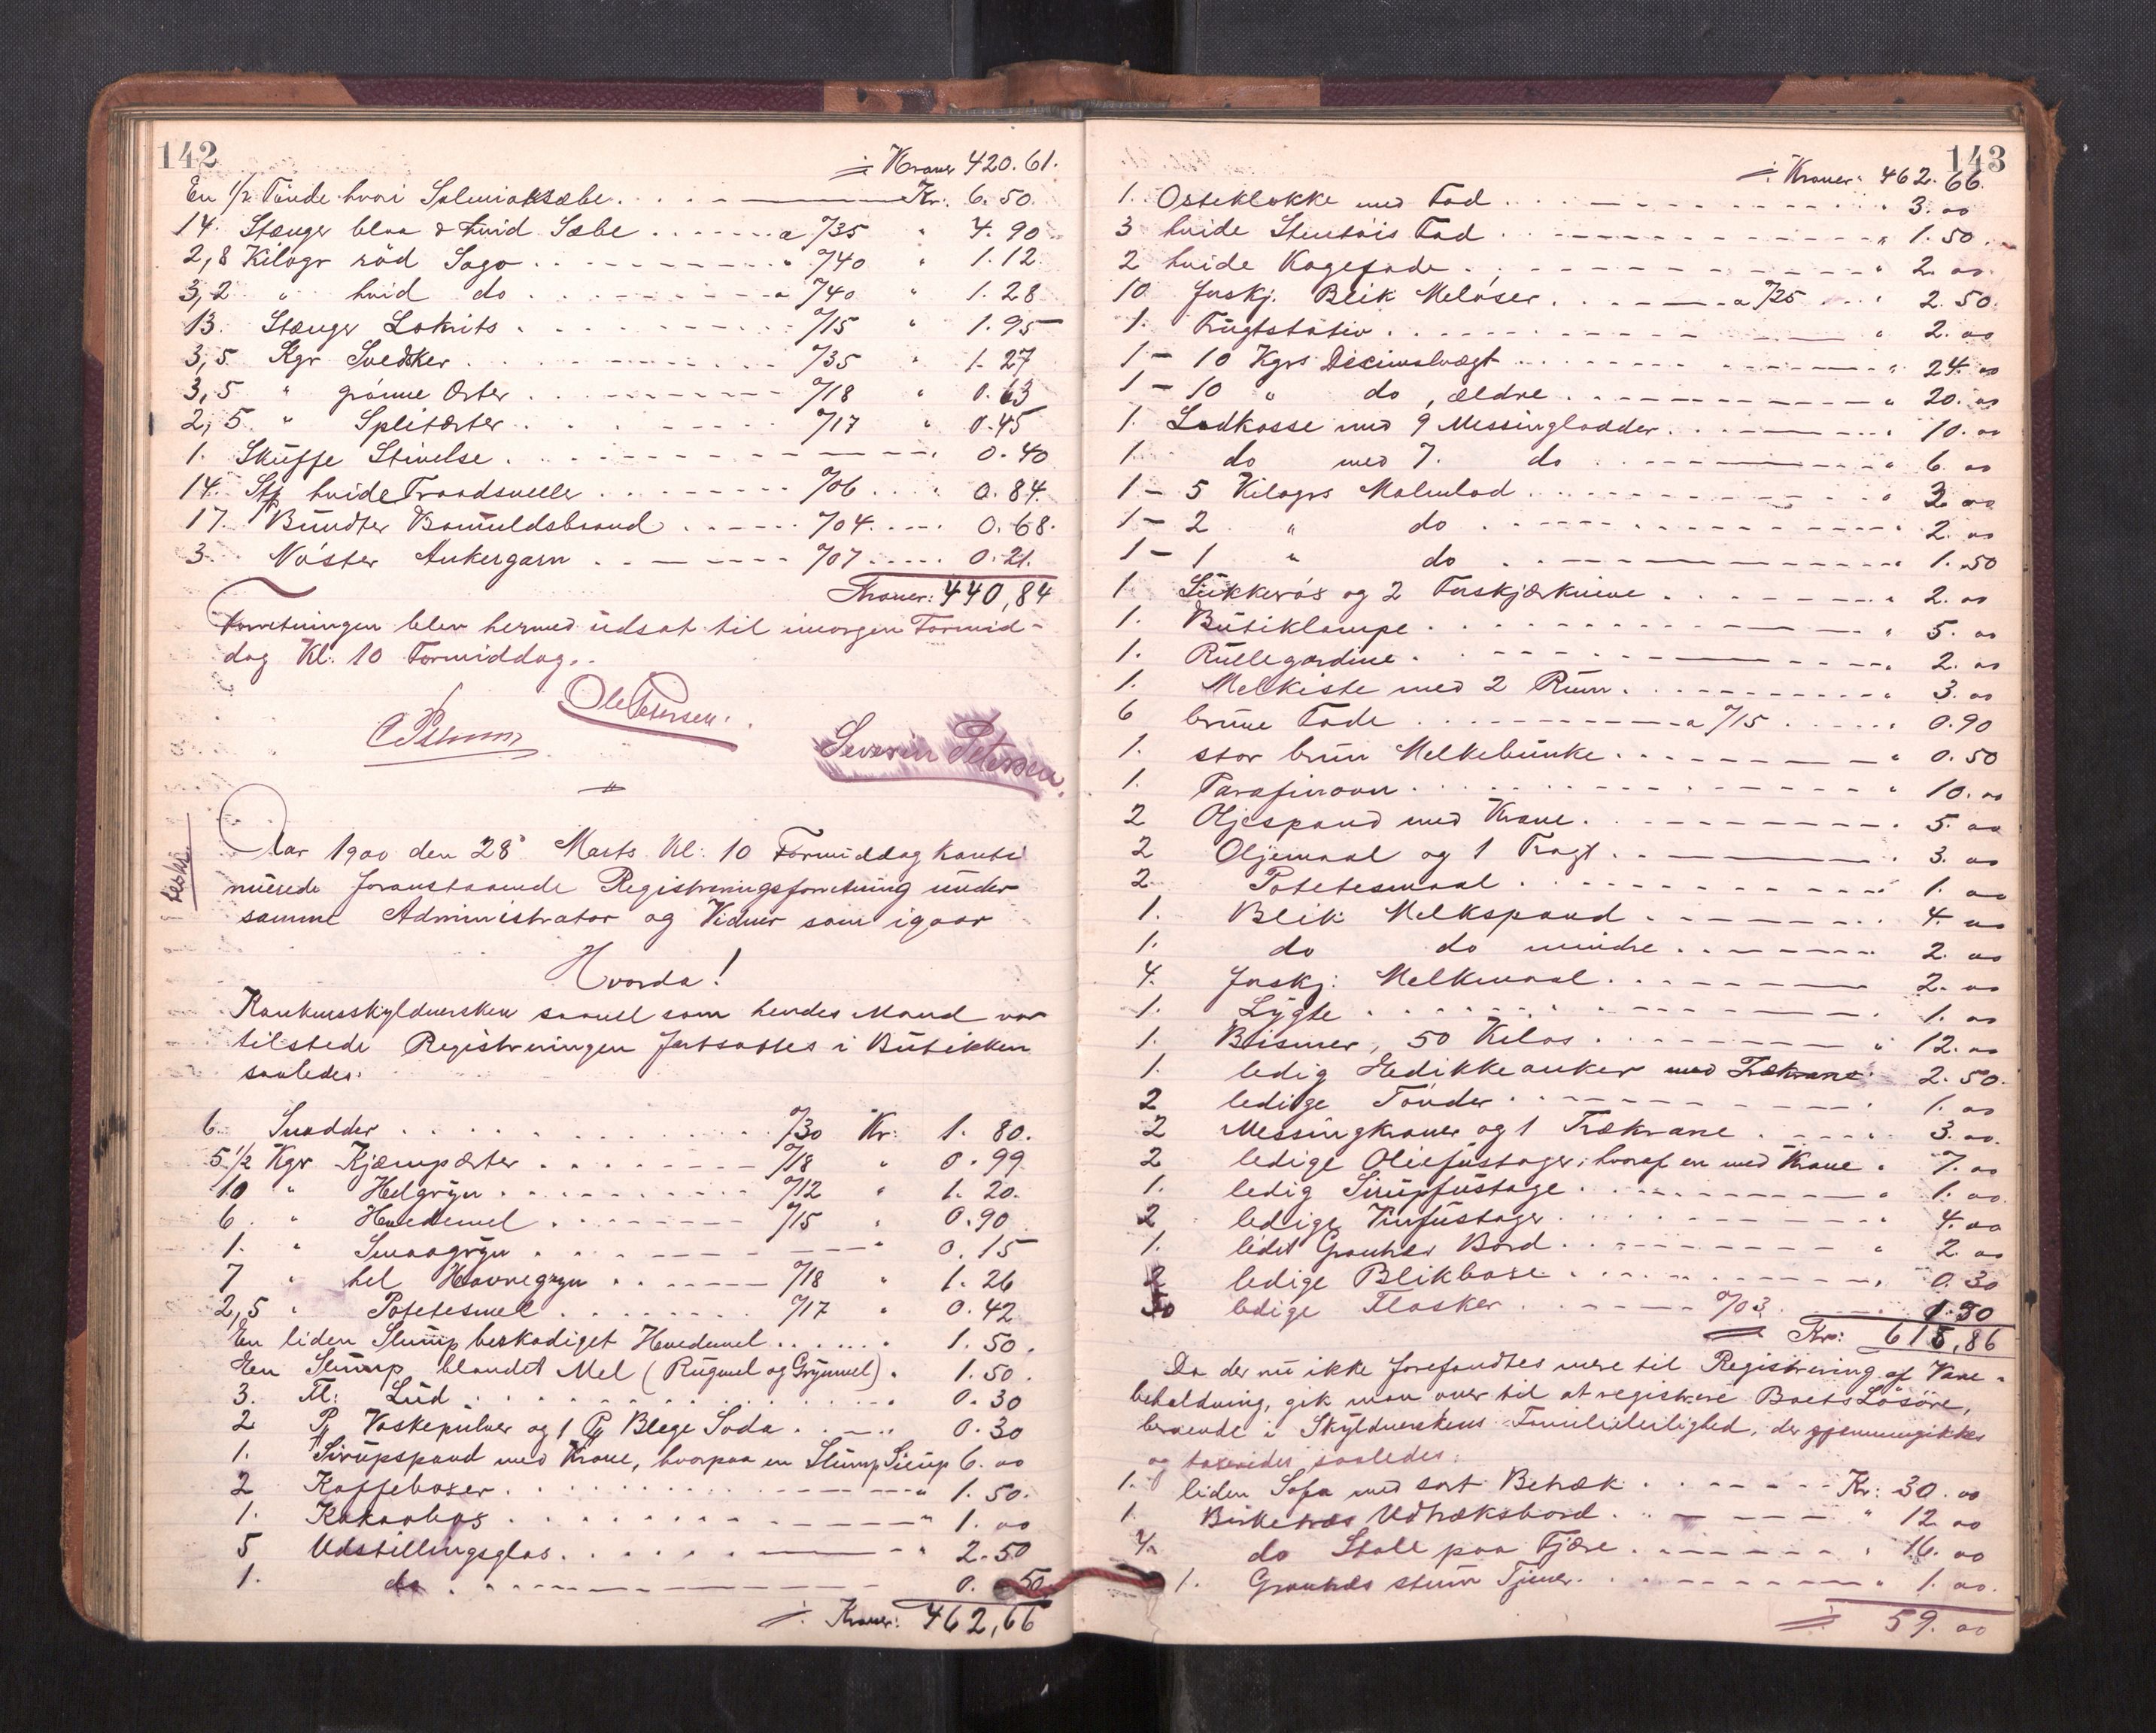 142
÷ Kroner 420.61.
En 1/2 Tønde hvori Salmiaksæbe . . . . Kr. 6.50.
14. Stænger blaa & hvid Sæbe . . . . a %35 " 4.90
2,8 Kilogr röd Sago . . . . " %40 " 1.12.
3,2 " hvid do . . . . a %40 " 1.28
13. Stænger Lakrits . . . . %15 " 1.95
3,5 Kgr Svedsker . . . . %35 " 1.27
3,5 " grönne Erter . . . . %18 " 0.63
2,5 " Spliterter . . . . %17 " 0.45
1. Skuffe Stivelse . . . . 0.40
14. Stk hvide Traadsneller . . . . %06 . . . 0.84.
17. Bundter Bomuldsbaand . . . . %04 . . . 0.68.
3. Nöster Ankergarn . . . . %07 . . . 0.21.
Kroner: 440,84
Forretningen blev hermed udsat til imorgen Formid-
dag Kl. 10 Formiddag.
Ole Petersen.
Severin Petersen.
Aar 1900 den 28' Marts Kl. 10 Formiddag konti
nuerede foranstaaende Registreringsforretning under
samme Administrator og Vidner som igaar
Hvorda!
Konkursskyldnersken saavel som hendes Mand var
tilstede Registreringen fortsattes i Butikken
saaledes:
6. Snadder . . . . %30 Kr. 1.80.
5 1/2 Kgr Kjæmpærter . . . . %18 " 0.99
10 " Helgryn . . . . %12 " 1.20.
6. " Hvedemel . . . . %15 " 0.90
1. " Smaagryn . . . . " 0.15
7 " hel Havregryn . . . . %18 " 1.26
2,5 " Potetesmel . . . . %17 " 0.42
En liden Slump beskadiget Hvedemel . . . . 1.50.
En Slump blandet Mel (Rugmel og Grynmel) . 1.50.
3. Fl: Lud . . . . 0.30
2 Pk Vaskepulver og 1 Pk Blege Soda . . . 0.30
1. Sirupspand med Krane, hvorpaa en Slump Sirup 6.00
2 Kaffeboxer . . . . " 1.50.
1. Kakaobox . . . . " 1.00
5 Udstillingsglas . . . . " 2.50
1. do . . . . 0.50
÷ Kroner: 462,66
143
÷ Kroner: 462.66.
1. Osteklokke med Fad . . . . " 3.00
3 hvide Stentöis Fad . . . . " 1.50.
2 hvide Kagefade . . . . " 2.00
10 forskj. Blik Melöser . . . . a %25 . . . 2.50.
1. Frugtstativ . . . . " 2.00
1 - 10 Kgrs Decimalvægt . . . . " 24.00
1 - 10 " do, ældre . . . . " 20.00
1. Lodkasse med 9 Messinglodder . . . . 10.00
1 do med 7. do . . . . " 6.00
1 - 5 Kilogrs Malmlod . . . . " 3.00
1 - 2 " do . . . . 2.00
1 - 1 " do . . . . 1.50
1. Sukkeröx og 2 Forskjærknive . . . . 2.00
1. Butiklampe . . . . " 5.00
1. Rullegardine . . . . 2.00
1. Melkiste med 2 Rum . . . . " 3.00
6 brune Fade . . . . a %15 . . . . 0.90
1. stor brun Melkebunke . . . . " 0.50
1. Parafinovn . . . . " 10.00
2 Oljespand med Krane . . . . 5.00
2 Oljemaal og 1 Tragt . . . . 3.00
2 Potetesmaal . . . . 1.00
1. Blik Melkspand . . . . 4.00
1. do do mindre . . . . 2.00
4. forskj: Melkemaal . . . . 2.00
1. Lygte . . . . 1.00
1. Bismer, 50 Kilos . . . . " 12.00
1. ledig Eddikkeanker med Trækrane 2.50.
2 ledige Tönder . . . . 1.00
2 Messingkraner og 1 Trækrane . . . . 3.00.
2 ledige Oliefustager, hvoraf en med Krane . 7.00
1. ledig Sirupfustage . . . . " 1.00.
2 ledige Vinfustager . . . . " 4.00
1. lidet Grantræs Bord . . . . " 2.00
2 ledige Blikboxe . . . . 0.30
50 ledige Flasker . . . . %03 . . . . 1.50
Kr: 615,86
Da der nu ikke forefandtes mere til Registrering af Vare-
beholdning, gik man over til at registrere Boets Lösöre,
beroende i Skyldnerskens Familieleilighed, der gjennemgikkes
og taxeredes saaledes:
1. liden Sofa med sort Betræk . . . . Kr: 30.00
1. Birketræs Udtræksbord . . . . " 12.00
4. do Stole paa Fjære . . . . " 16.00
1. Grantræs stum Tjener . . . . " 1.00.
÷ 59.00